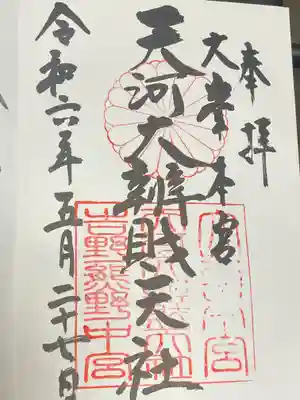 奉拝
大峯本宮
天河大辨財天社
令和六年五月二十七日
吉野熊野中宮